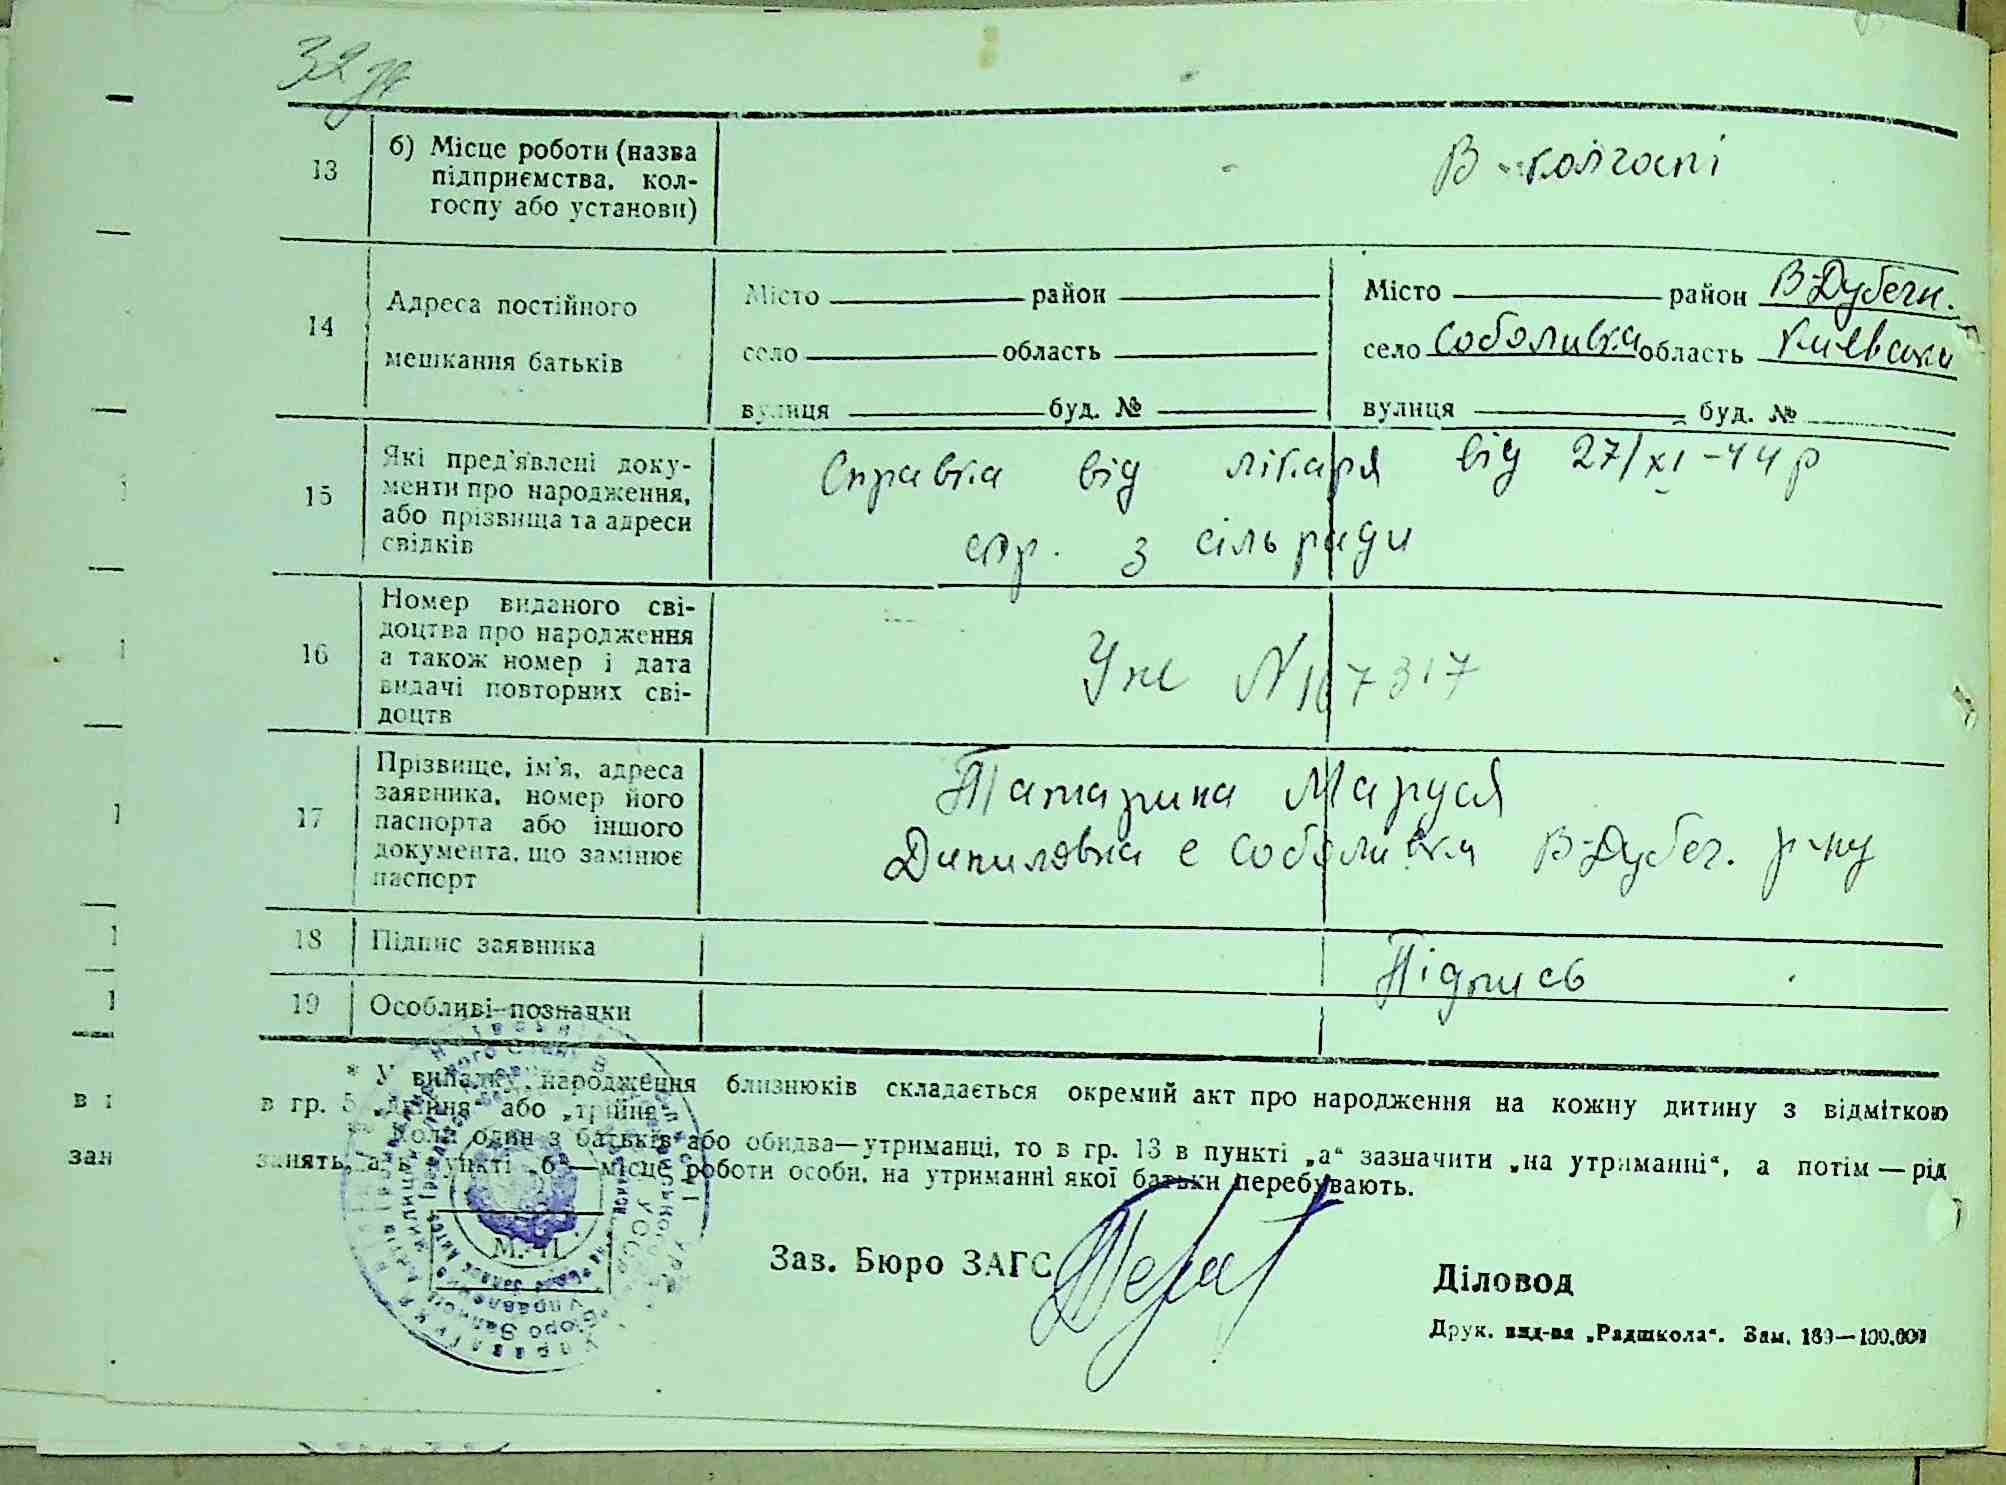 32
13
б) Місце роботи (назва
підприємства, кол-
госпу або установи)
В колгоспі
14
Адреса постійного
мешкання батьків
Місто район
село область
вулиця буд. №
Місто район В-Дубечн.
село Соболивка область Киевська
вулиця буд. №
15
Які пред'явлені доку-
менти про народження,
або прізвища та адреси
свідків
Справка від лікаря від 27/XI-44 р
спр. з сільради
16
Номер виданого сві-
доцтва про народження
а також номер і дата
видачі повторних сві-
доцтв
N 167317
17
Прізвище, ім'я, адреса
заявника, номер його
паспорта або іншого
документа, що замінює
паспорт
Татарина Маруся
Даниловна с Соболивка В-Дубеч. р-ну
18
Підпис заявника
Підпись
19
Особливі познаки
* У випадку народження близнюків складається окремий акт про народження на кожну дитину з відміткою
в гр. 5 „двійня" або „трійня"
Коли один з батьків або обидва—утриманці, то в гр. 13 в пункті „а" зазначити „на утриманні", а потім — рід
занять, а в пункті „б"—місце роботи особи, на утриманні якої батьки перебувають.
М. П.
Зав. Бюро ЗАГС
Діловод
Друк. вид-ва „Радшкола". Зам. 189—100.000